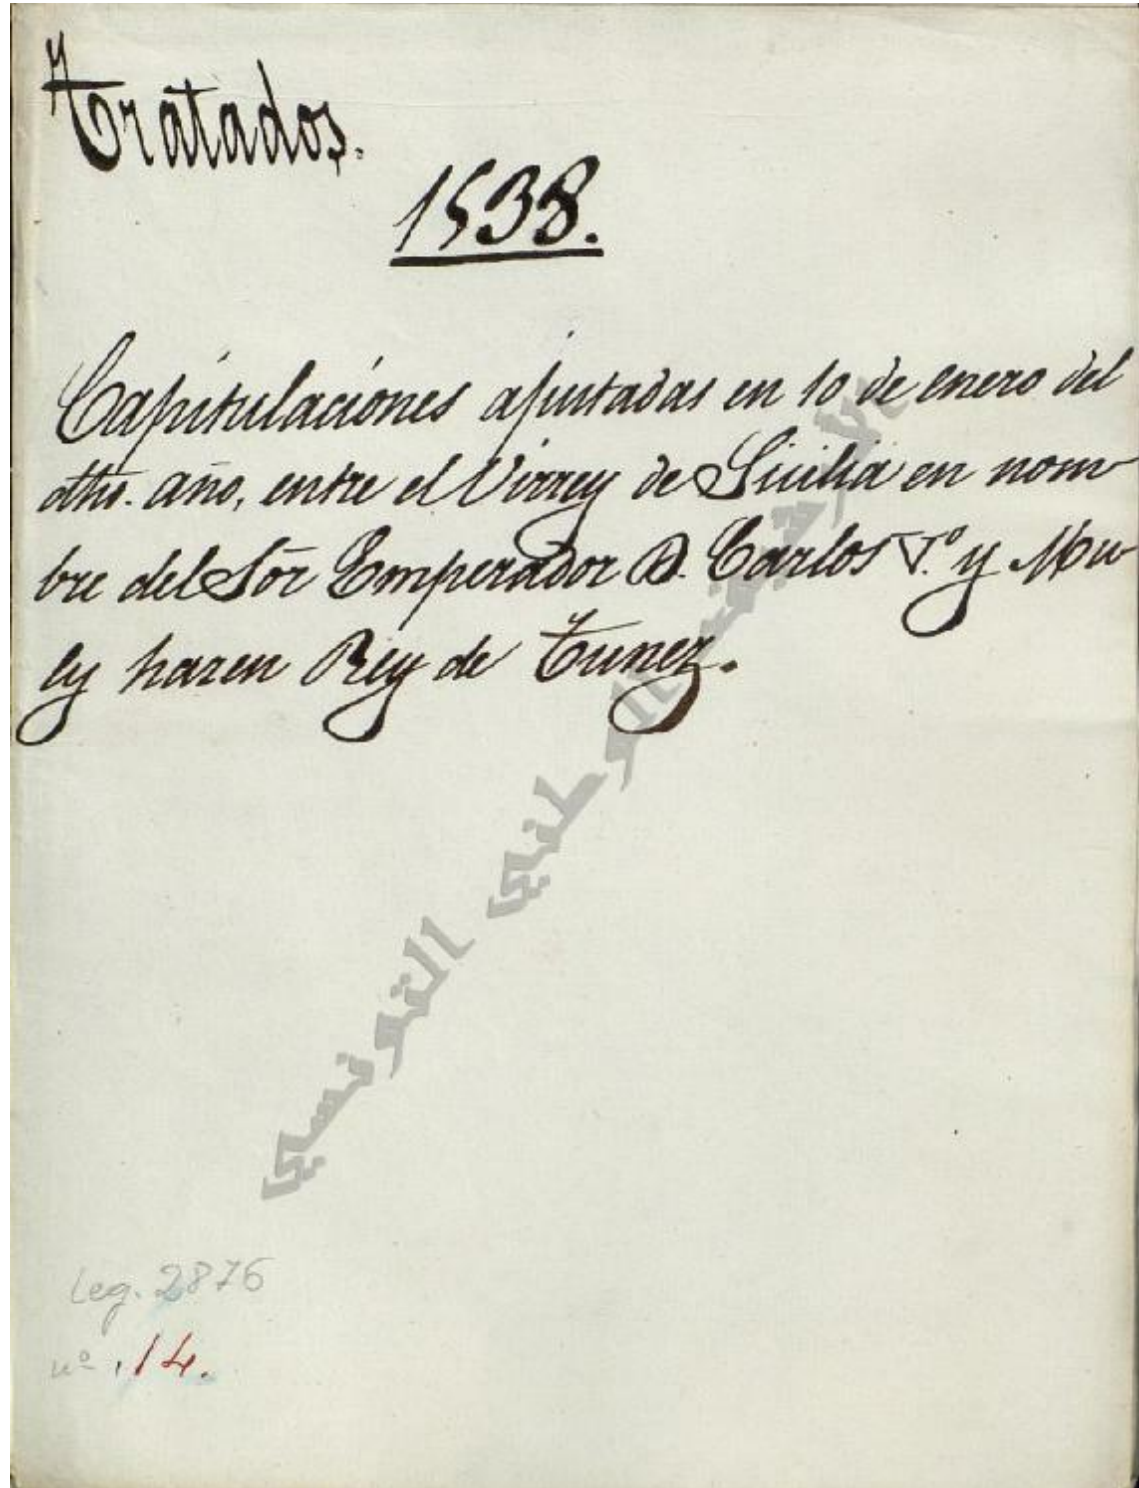 Tratados.
1538.
Capitulaciones ajustadas en 10 de enero del
dho. año, entre el Virrey de Sicilia en nom
bre del Sōr Emperador D. Carlos V.º y Mu
ley hazen Rey de Tunez.
الأرشيف الوطني التونسي
leg. 2876
nº 14.